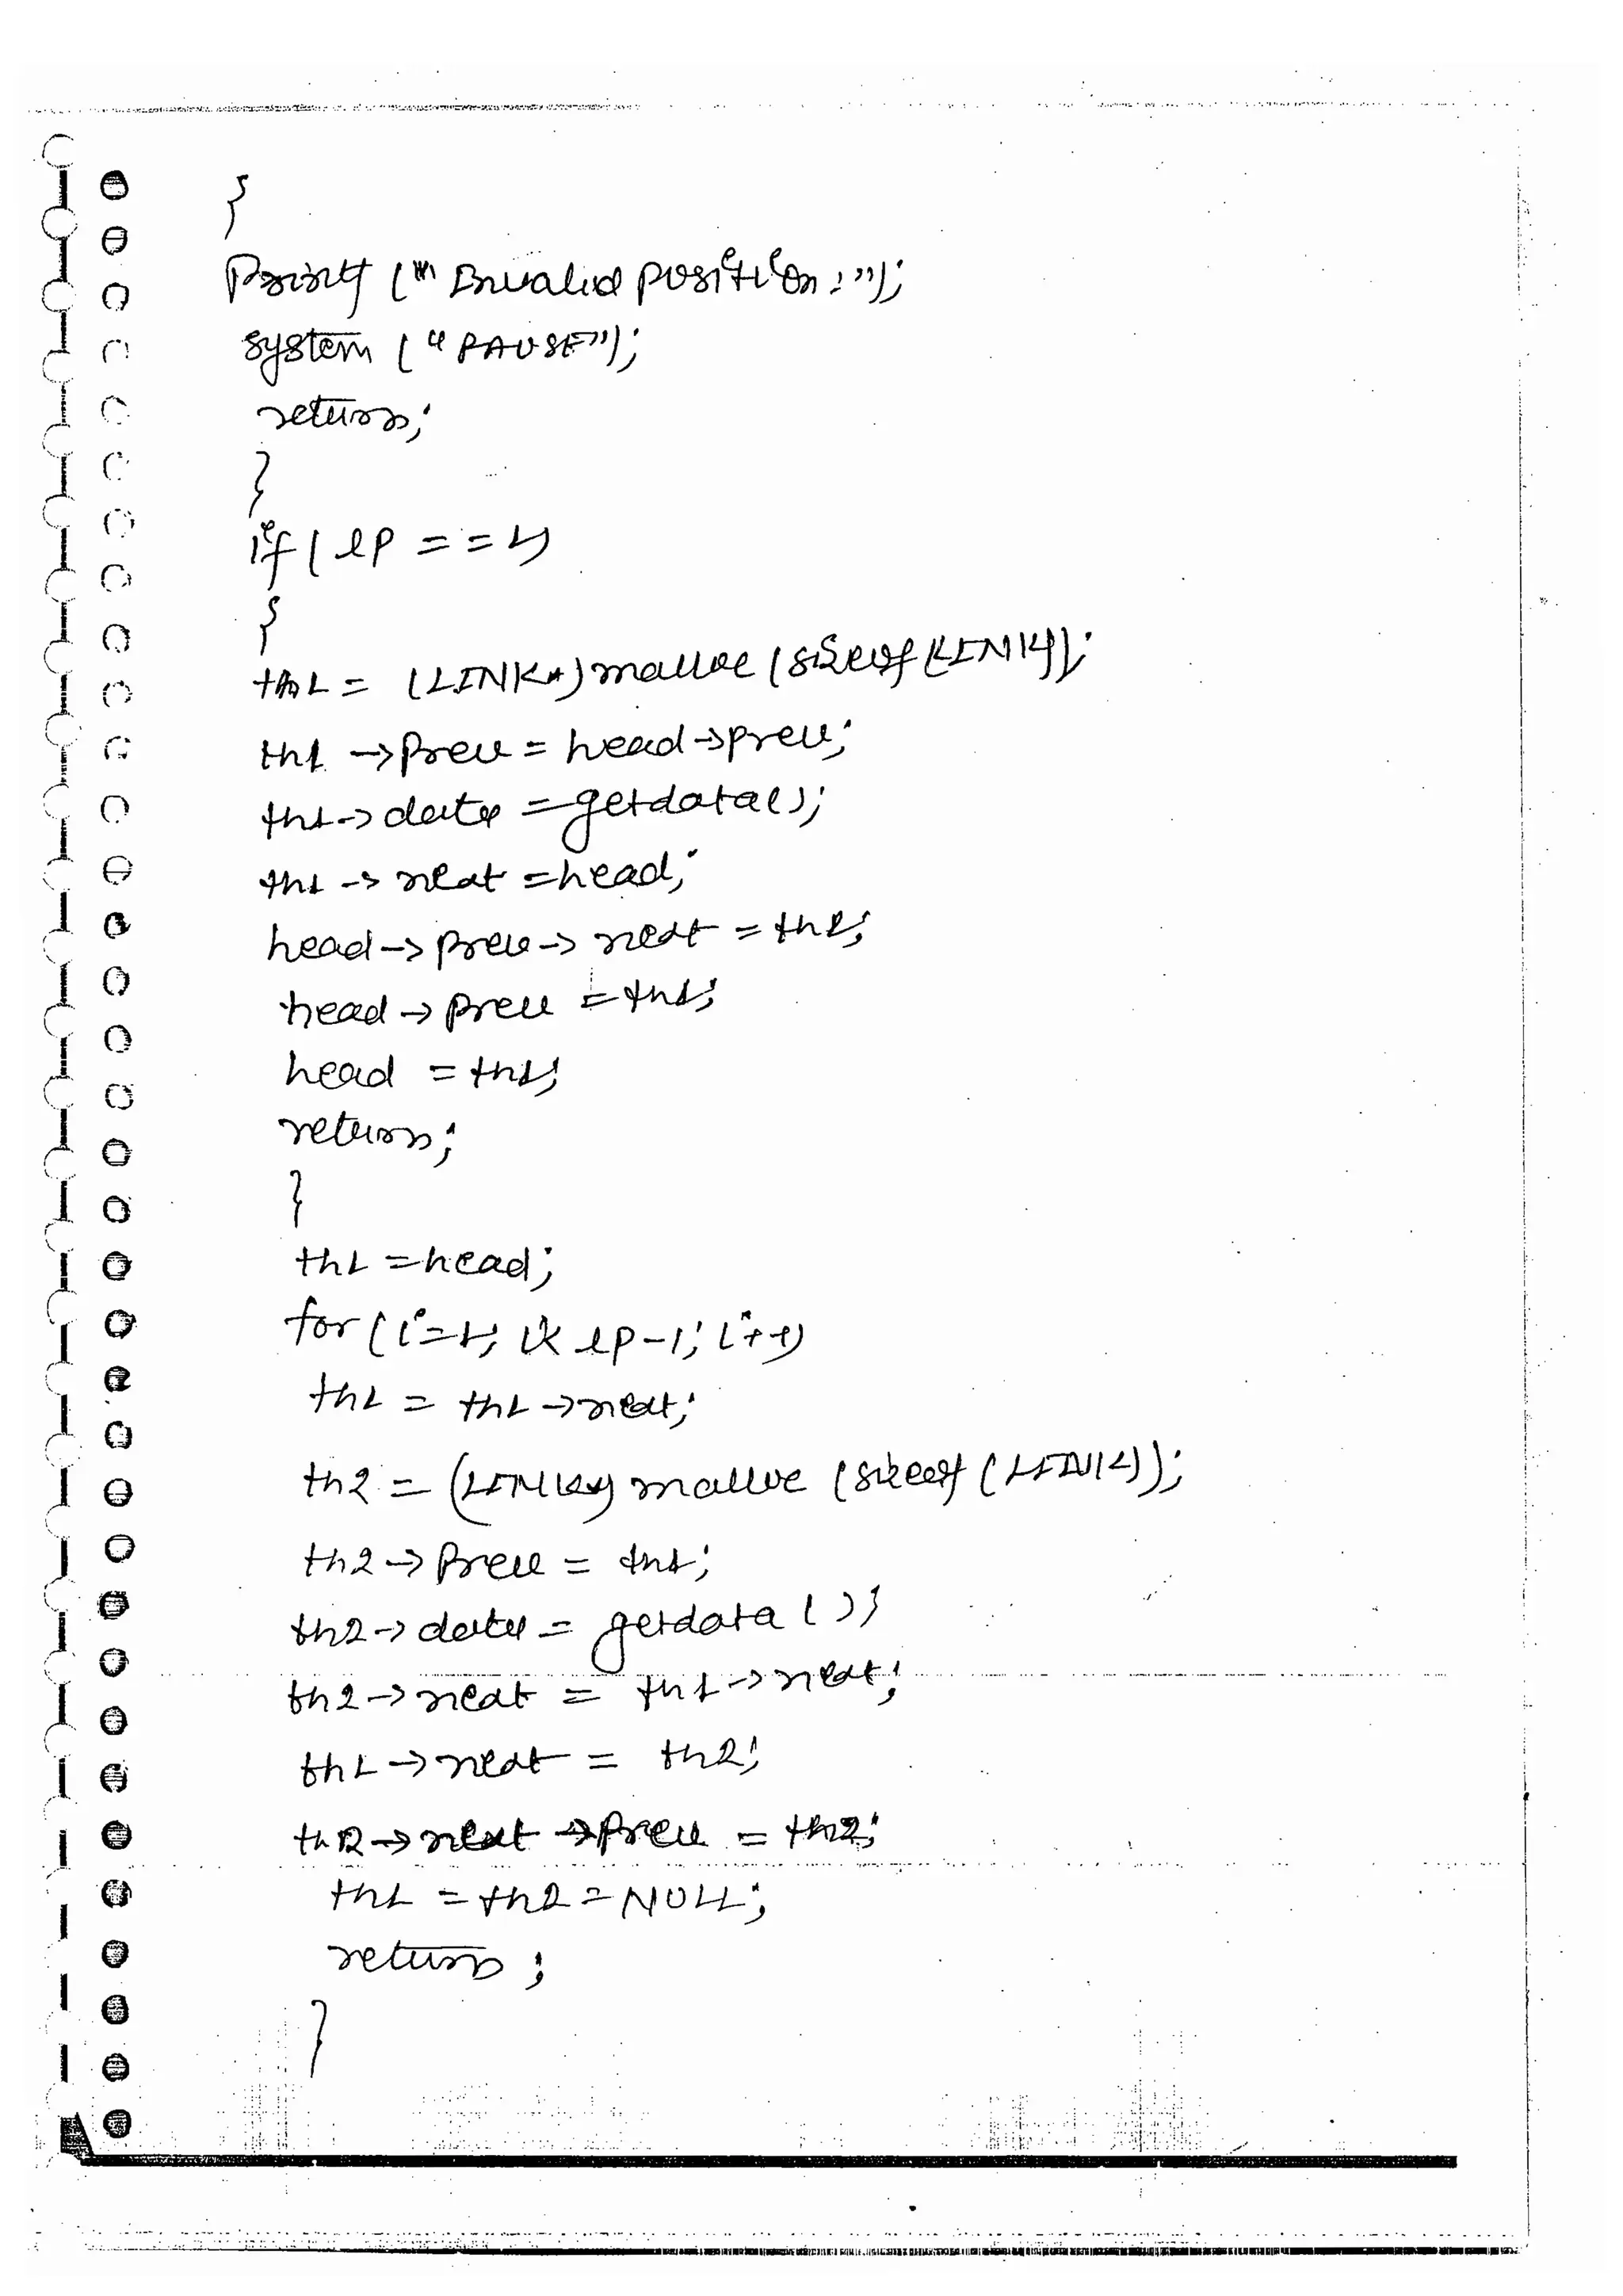 {
Printf ("Invalid position:");
system ("PAUSE");
return;
}
if(lp==1)
{
th1 = (LINK*)malloc(sizeof(LINK));
th1->Prev = head->prev;
th1->data = getdata();
th1->next = head;
head->prev->next = th1;
head->prev = th1;
head = th1;
return;
}
th1 = head;
for(i=1; i<lp-1; i++)
th1 = th1->next;
th2 = (LINK*)malloc (sizeof(LINK));
th2->Prev = th1;
th2->data = getdata();
th2->next = th1->next;
th1->next = th2;
th2->next->Prev = th2;
th1 = th2 = NULL;
return;
}